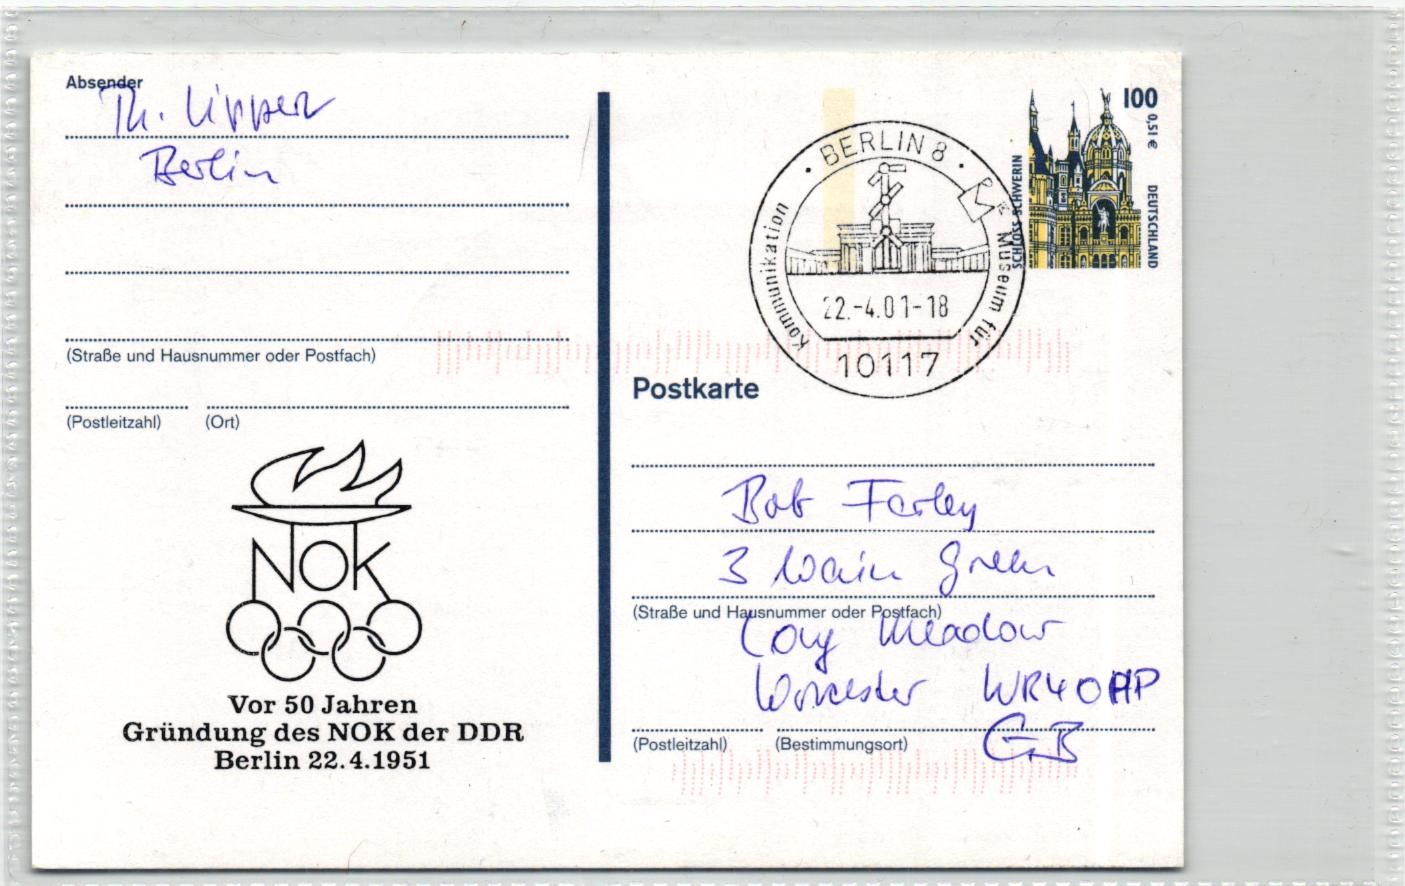 Absender
Th. Lippert
Berlin
(Straße und Hausnummer oder Postfach)
(Postleitzahl) (Ort)
NOK
Vor 50 Jahren
Gründung des NOK der DDR
Berlin 22.4.1951
BERLIN 8
Museum für
Kommunikation
22.-4.01-18
10117
100
0,51 €
DEUTSCHLAND
SCHLOSS SCHWERIN
Postkarte
Bob Farley
3 Wain Green
(Straße und Hausnummer oder Postfach)
Long Meadow
Worcester WR4 0HP
(Postleitzahl) (Bestimmungsort)
GB